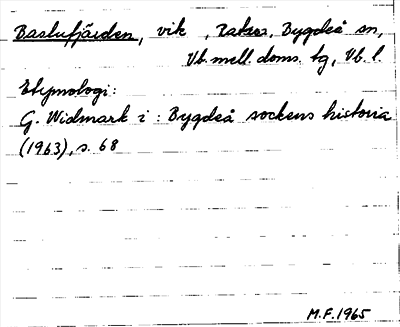 Baslufjärden, vik, Ratan, Bygdeå sn,
Vb. mell. doms. tg, Vb. l.
Etymologi:
G. Widmark i: Bygdeå sockens historia
(1963), s. 68
M.F. 1965